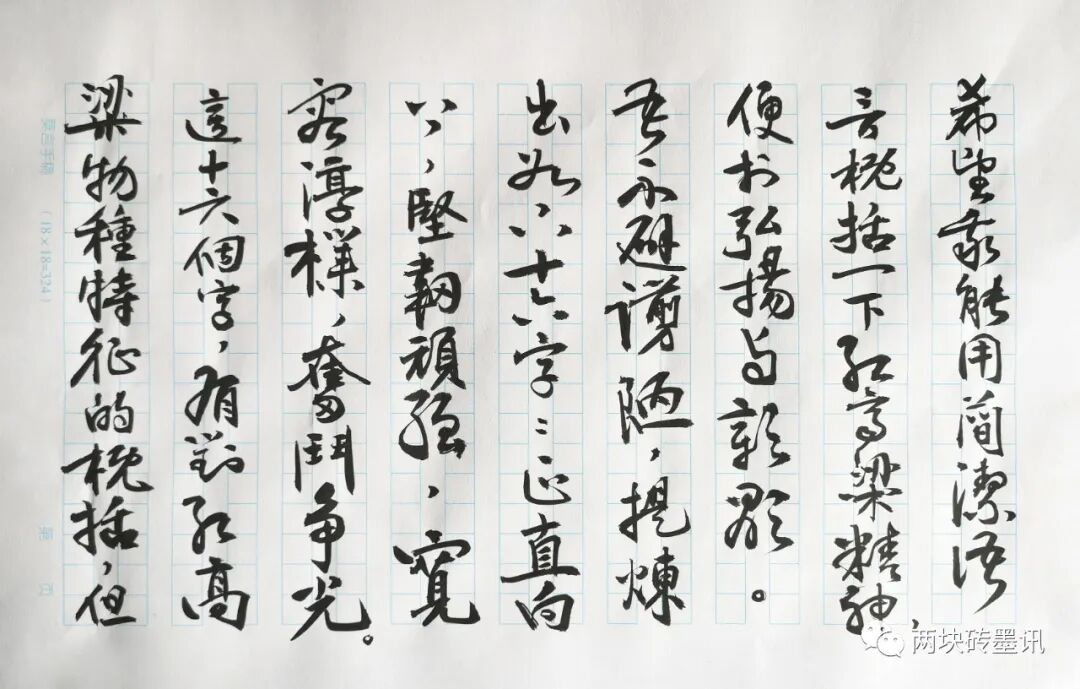 希望我能用簡潔語
言概括一下紅高粱精神，
便於弘揚与彰顯。
吾不避譾陋，提煉
出如下十六字：正直向
上，堅韌頑强，寬
容淳樸，奮鬥争光。
這十六個字，有對紅高
粱物種特征的概括，但
莫言手稿 （18×18=324） 第 页
两块砖墨讯